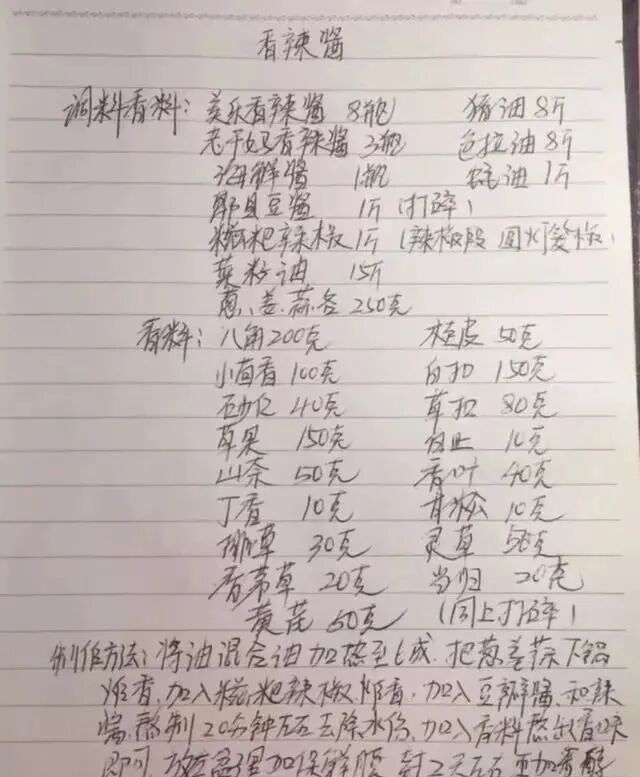 香辣酱
调料香料：美乐香辣酱 8瓶 猪油 8斤
老干妈香辣酱 3瓶 色拉油 8斤
海鲜酱 1瓶 油 1斤
郫县豆酱 1斤（打碎）
糍粑辣椒 1斤（辣椒段
菜籽油 15斤
葱、姜、蒜各 250克
香料：八角 200克 桂皮 50克
小茴香 100克 白扣 150克
40克 草扣 80克
草果 150克 白止 10克
山奈 50克 香叶 40克
丁香 10克 甘松 10克
排草 30克 灵草 50克
香茅草 20克 当归 20克
黄芪 50克 （同上打碎）
制作方法：将油混合油加热至6成，把葱姜蒜下锅
炸香，加入糍粑辣椒炸香，加入豆瓣酱和辣
酱，熬制20分钟左右去除水份，加入香料熬出香味
即可，加保鲜膜，封2天左右